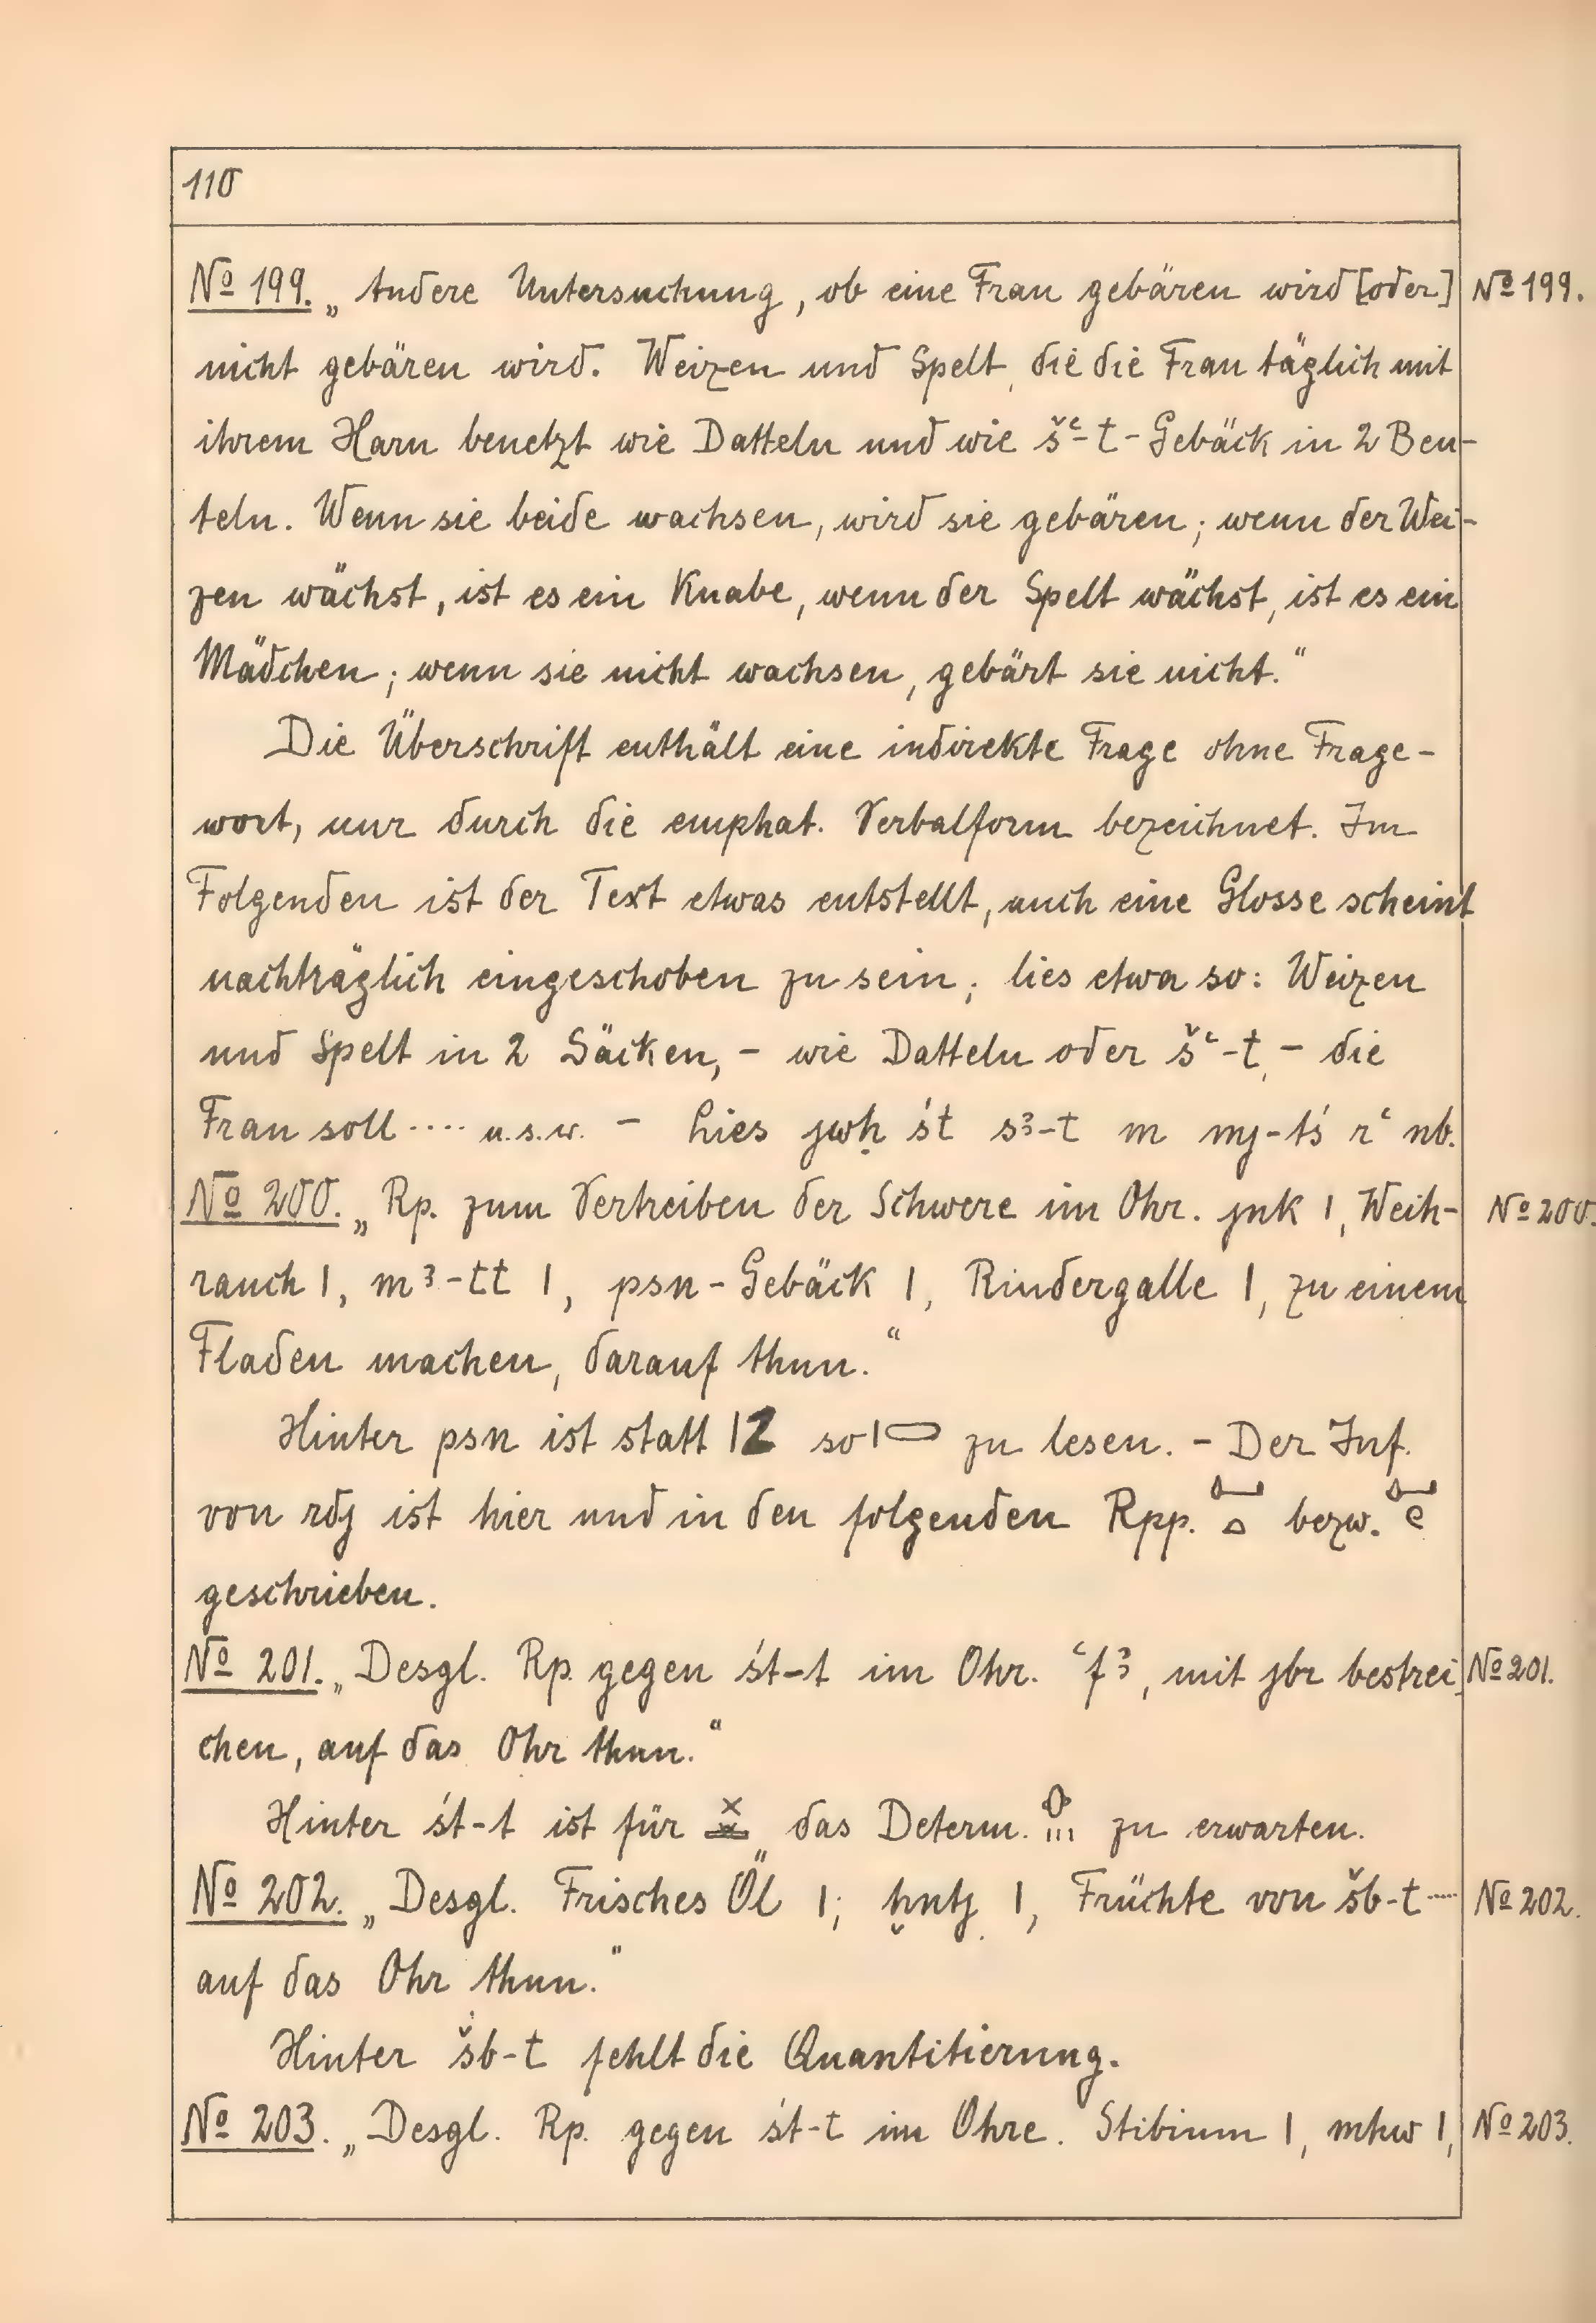 110
No 199. „Andere Untersuchung, ob eine Frau gebären wird [oder] No 199.
nicht gebären wird. Weizen und Spelt, die die Frau täglich mit
ihrem Harn benetzt wie Datteln und wie šꜥ-t-Gebäck in 2 Beu-
teln. Wenn sie beide wachsen, wird sie gebären; wenn der Wei-
zen wächst, ist es ein Knabe, wenn der Spelt wächst, ist es ein
Mädchen; wenn sie nicht wachsen, gebärt sie nicht.“
Die Überschrift enthält eine indirekte Frage ohne Frage-
wort, nur durch die emphat. Verbalform bezeichnet. Im
Folgenden ist der Text etwas entstellt, auch eine Glosse scheint
nachträglich eingeschoben zu sein; lies etwa so: Weizen
und Spelt in 2 Säcken, - wie Datteln oder šꜥ-t, - die
Frau soll .... u.s.w. - Lies jwḥ śt sꜣ-t m mj-tś rꜥ nb.
No 200. „Rp. zum Vertreiben der Schwere im Ohr. jnk 1, Weih- No 200.
rauch 1, mꜣ-tt 1, psn-Gebäck 1, Rindergalle 1, zu einem
Fladen machen, darauf thun.“
Hinter psn ist statt so zu lesen. - Der Inf.
von rdj ist hier und in den folgenden Rpp. bezw.
geschrieben.
No 201. „Desgl. Rp. gegen śt-t im Ohr. ꜥfꜣ, mit jbr bestrei- No 201.
chen, auf das Ohr thun.“
Hinter śt-t ist für das Determ. zu erwarten.
No 202. „Desgl. Frisches Öl 1; ḫntj 1, Früchte von šb-t .... No 202.
auf das Ohr thun.“
Hinter šb-t fehlt die Quantitierung.
No 203. „Desgl. Rp. gegen śt-t im Ohre. Stibium 1, mhw 1, No 203.